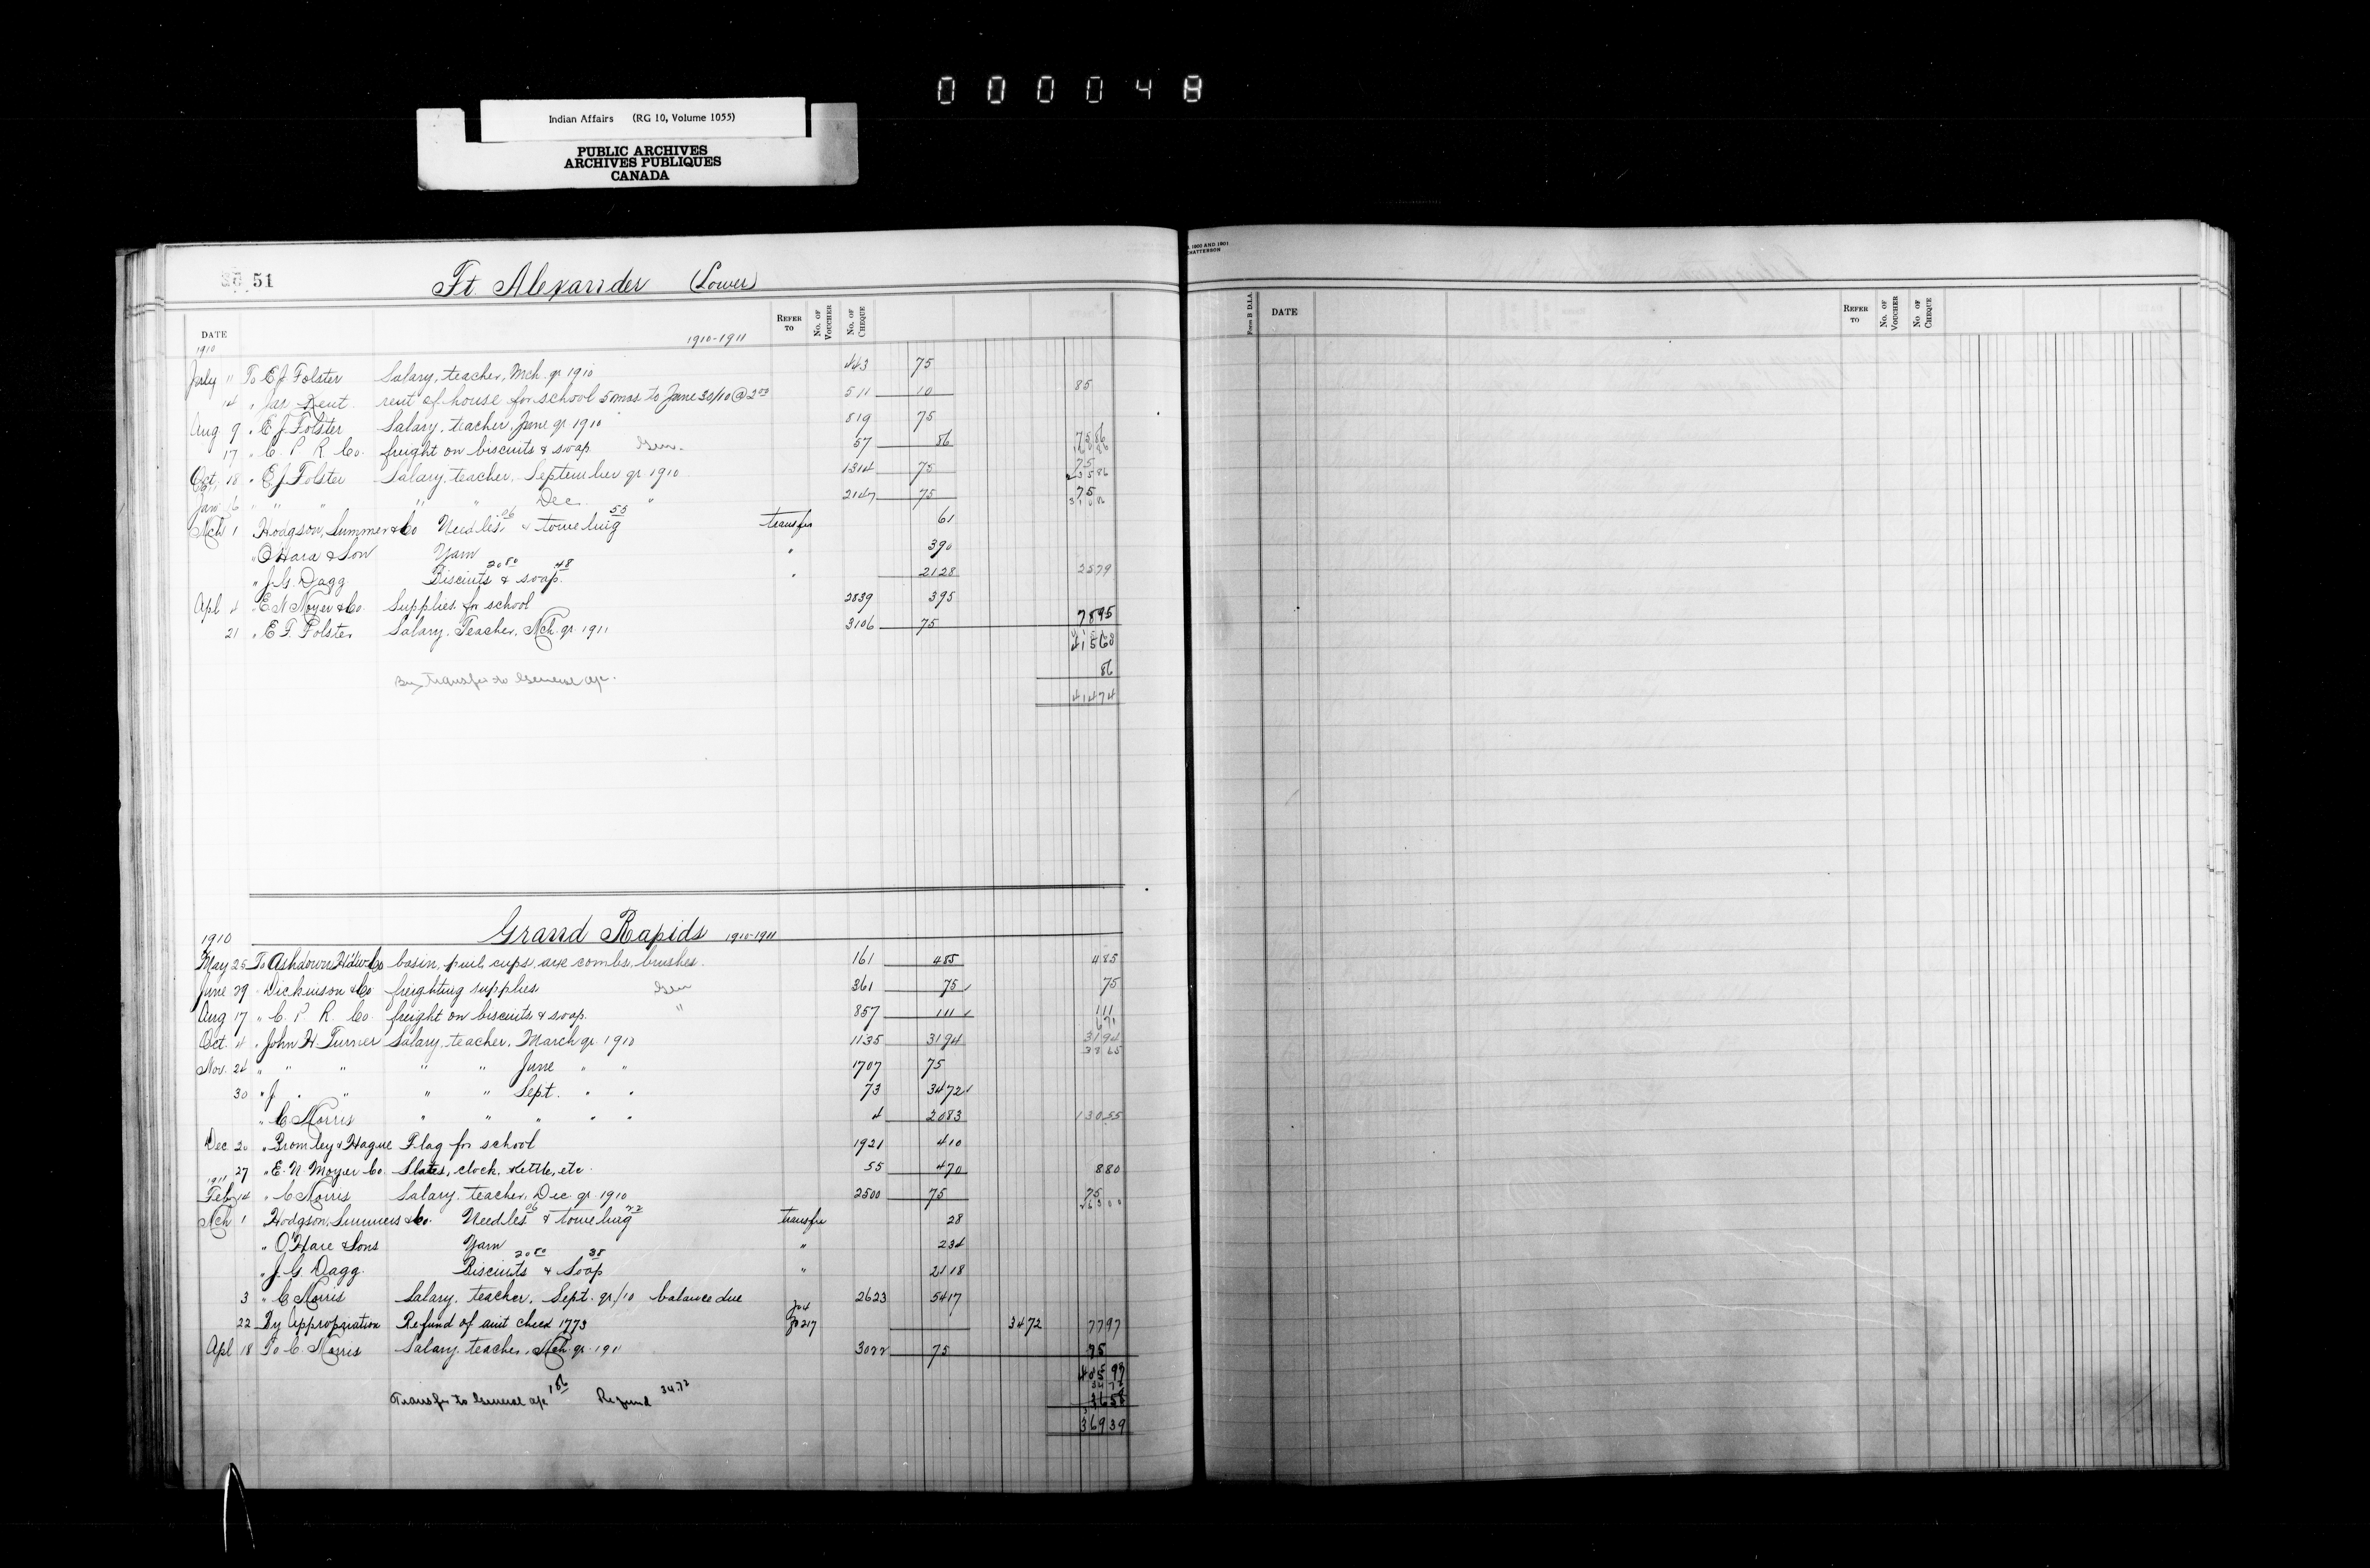 000048
Indian Affairs (RG 10, Volume 1055)
PUBLIC ARCHIVES
ARCHIVES PUBLIQUES
CANADA
51 Ft Alexander (Lower)
DATE REFER TO No. OF VOUCHER No. OF CHEQUE
1910 1910-1911
July 11 To E J Folster Salary, teacher, Mch. qr 1910 443 75
14 " Jas Kent rent of house for school 5 mos. to June 30/10 @ 2.00 511 10 85
Aug 9 " E J Folster Salary, teacher, June qr 1910 819 75
17 " C. P. R. Co. freight on biscuits & soap Gen. 57 86 7586
Oct. 18 " E J Folster Salary, teacher, September qr 1910 1314 75 75
23586
Jan 6 " " " " " Dec " 2147 75 75
31086
Mch 1 Hodgson, Sumner & Co Needles .06 & toweling 55 transfer 61
" O'Hara & Son Yarn " 390
" J. G. Dagg Biscuits 20 80 & soap 48 " 2128 2579
Apl 4 " E N Moyer & Co. Supplies for school 2839 395
21 " E. F. Folster Salary, Teacher, Mch. qr 1911 3106 75 7895
41560
By transfer to General a/c. 86
41474
Grand Rapids 1910-1911
1910
May 25 To Ashdown H'dw Co basin, pail, cups, axe combs, brushes. 161 485 485
June 29 " Dickinson & Co freighting supplies Gen 361 75 75
Aug 17 " C. P. R. Co. freight on biscuits & soap " 857 111 111
671
Oct. 4 " John H. Turner Salary, teacher, March qr 1910 1135 3194 3194
3865
Nov. 24 " " " " " June " " 1707 75
30 " J " " " " Sept. " " 73 3472
" C Morris " " " " " 4 2083 13055
Dec 20 " Bromley & Hague Flag for school 1921 410
27 " E. N. Moyer Co. Slates, clock, kettle, etc. 55 470 880
1911
Feby 14 " C Morris Salary, teacher, Dec qr 1910 2500 75 75
Mch 1 Hodgson, Sumner & Co. Needles 06 & toweling 22 transfer 28
" O'Hare & Sons Yarn " 234
" J. G. Dagg Biscuits 20 80 & Soap 38 " 2118
3 " C Morris Salary, teacher, Sept. qr/10 balance due 2623 5417
22 By Appropriation Refund of amt check 1773 Jo 217 3472 7797
Apl 18 To C. Morris Salary, teacher, Mch qr 1911 3022 75 75
40597
Transfer to General a/c 1 86 Refund 34.72 3472
3658
36939
DATE REFER TO No. OF VOUCHER No OF CHEQUE
Form B D.I.A.
1900 AND 1901